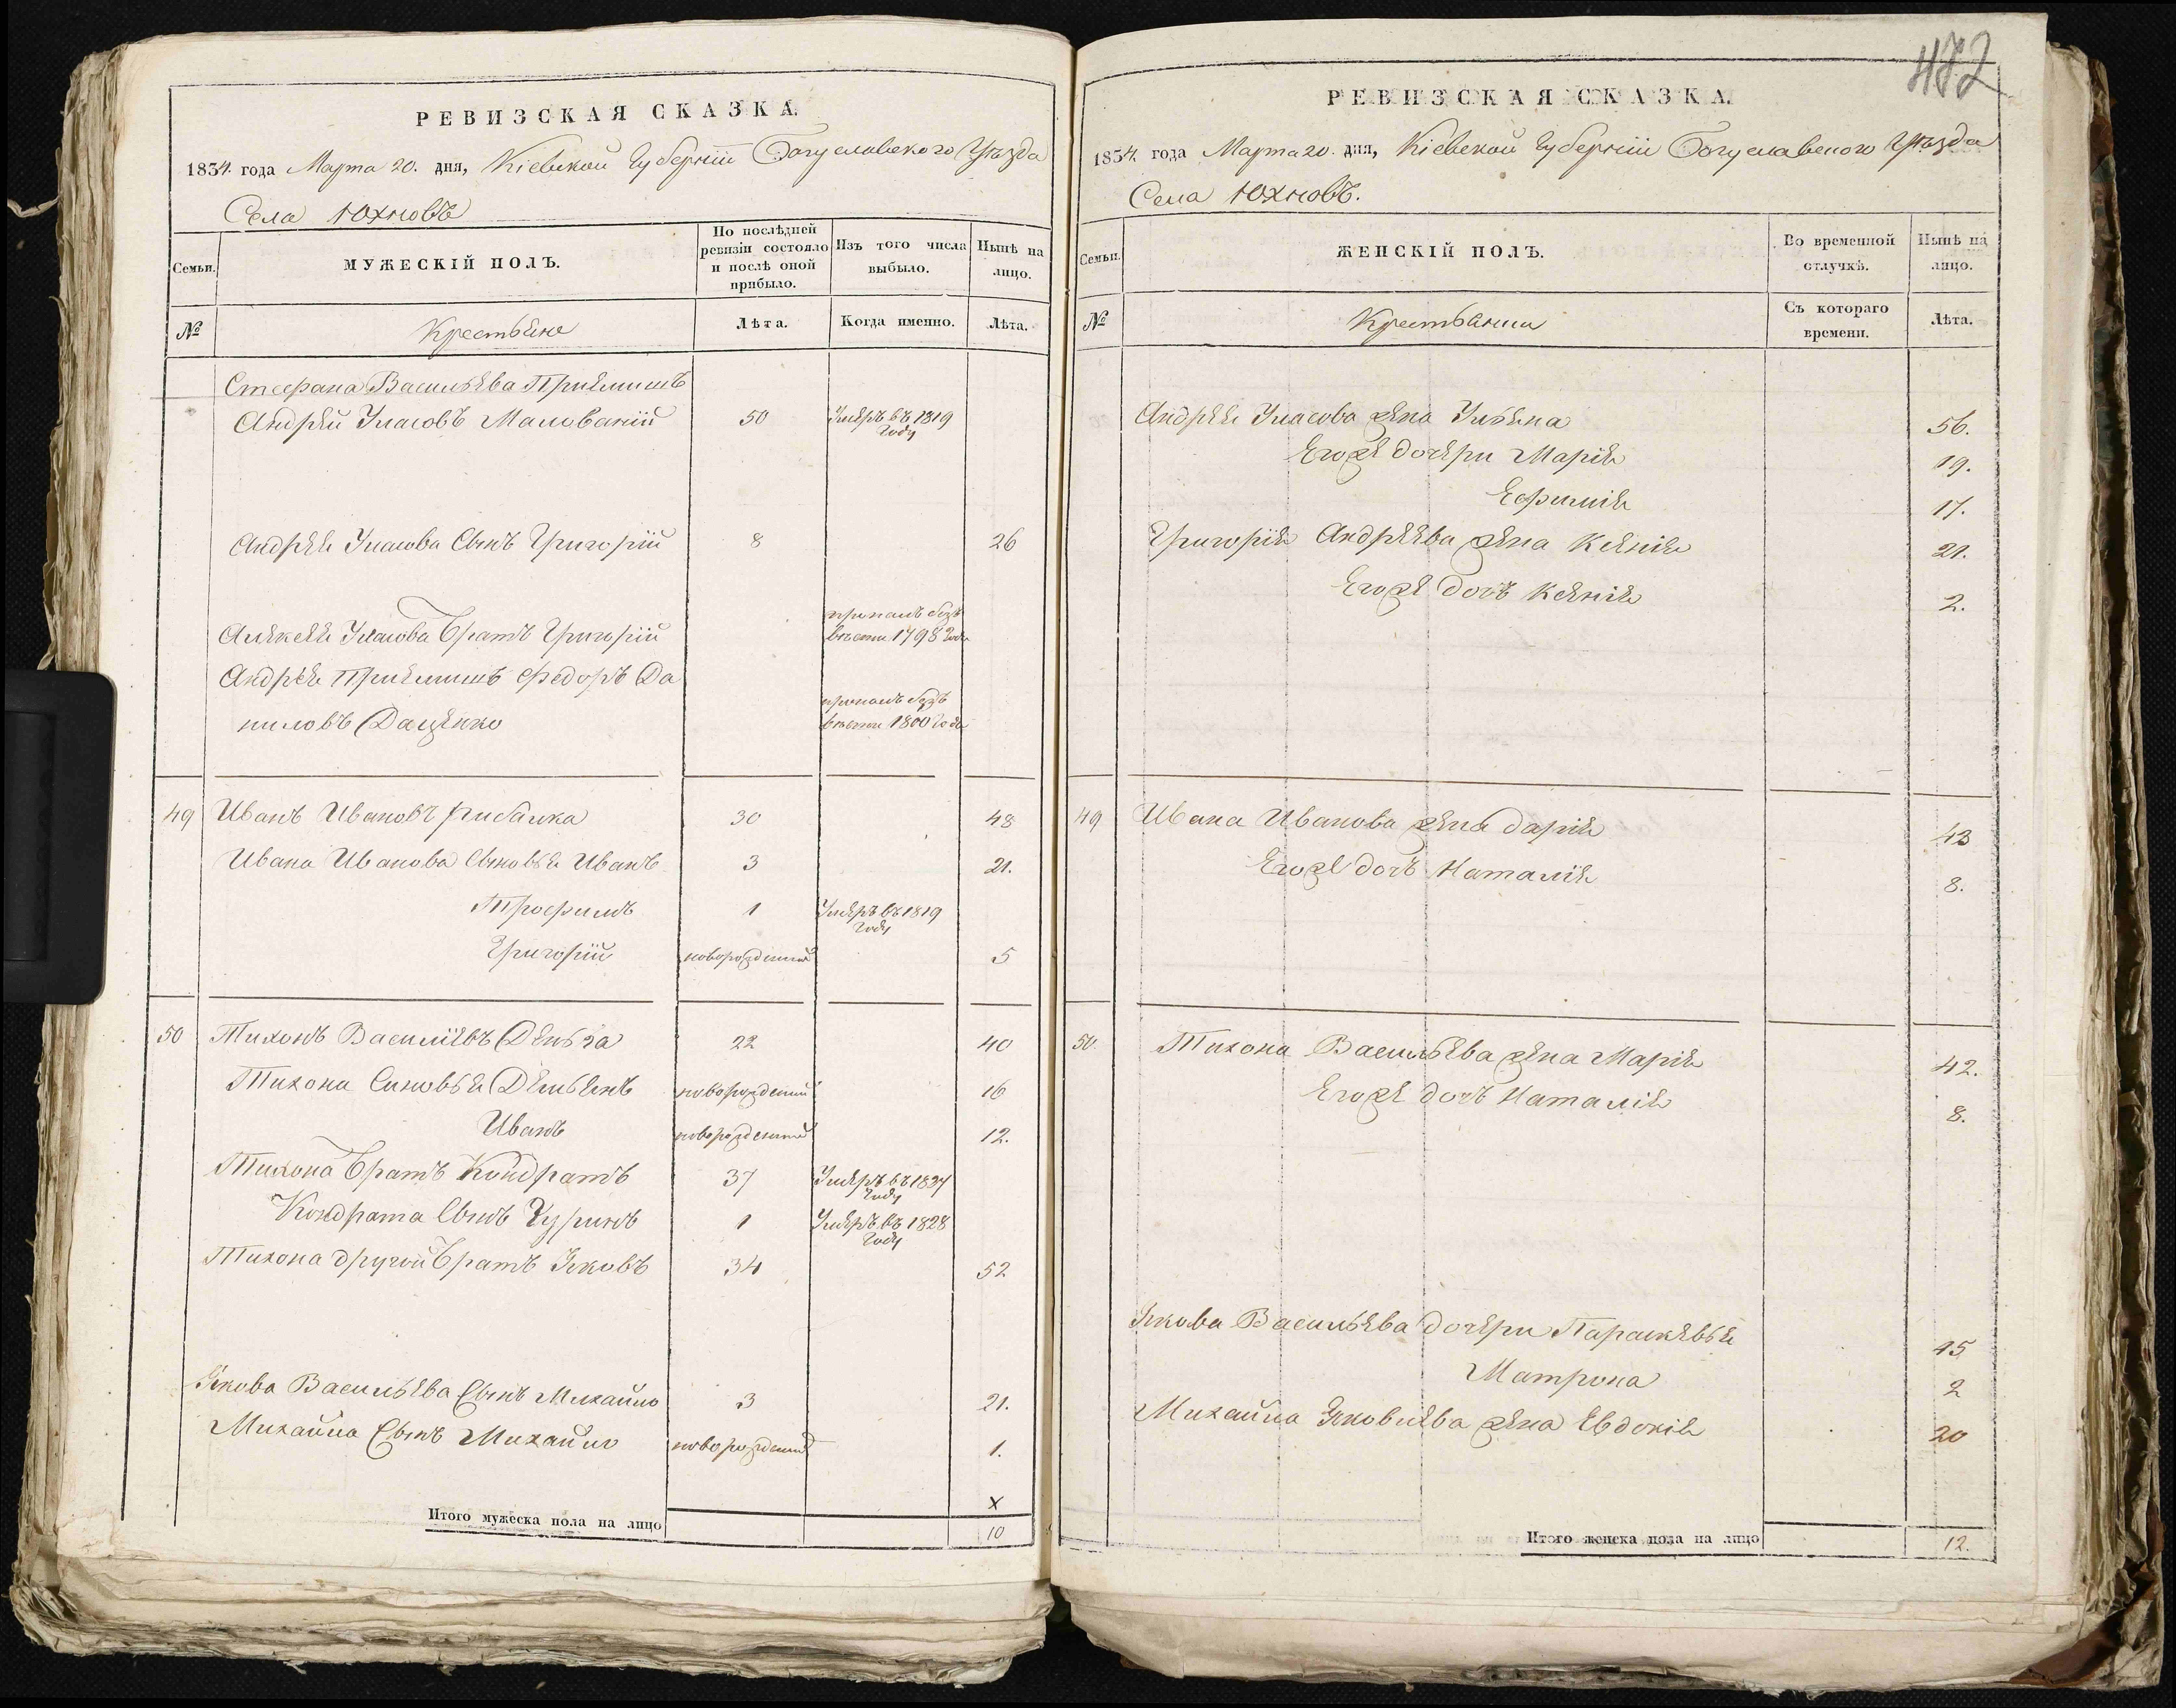 РЕВИЗСКАЯ СКАЗКА.
1834. года Марта 20. дня, Кіевской Губерніи Богуславского Уѣзда
Села Юхновъ
Семьи.
МУЖЕСКІЙ ПОЛЪ.
По послѣдней ревизіи состояло и послѣ оной прибыло.
Изъ того числа выбыло.
Нынѣ на лицо.
№
Крестьяне
Лѣта.
Когда именно.
Лѣта.
Стефана Васильева Приемишъ
Андрей Уласовъ Малованій 50 Умеръ въ 1819 Году
Андрея Уласова Сынъ Григорій 8 26
Алексея Уласова Братъ Григорій пропалъ безъ вѣсти 1798 Года
Андрея Приемишъ Федоръ Да
ниловъ Даценко пропалъ безъ вѣсти 1800 Года
49 Иванъ Ивановъ Рибалка 30 48
Ивана Иванова Сыновья Иванъ 3 21.
Трофимъ 1 Умеръ въ 1819 Году
Григорій новорожденный 5
50 Тихонъ Василіевъ Деньга 22 40
Тихона Синовья Демьянъ новорожденный 16
Иванъ новорожденный 12.
Тихона Братъ Кондратъ 37 Умеръ въ 1834 Году
Кондрата Сынъ Гуринъ 1 Умеръ въ 1828 Году
Тихона другой Братъ Яковъ 34 52
Якова Васильева Сынъ Михайло 3 21.
Михайла Сынъ Михайло новорожденный 1.
x
Итого мужеска пола на лицо 10
472
РЕВИЗСКАЯ СКАЗКА.
1834. года Марта 20. дня, Кіевской Губерніи Богуславского Уѣзда
Села Юхновъ.
Семьи.
ЖЕНСКІЙ ПОЛЪ.
Во временной отлучкѣ.
Нынѣ на лицо.
№
Крестьянки
Съ котораго времени.
Лѣта.
Андрея Уласова жена Ульяна 56.
Егоже дочери Марія 19.
Ефимія 17.
Григорія Андреева жена Ксенія 21.
Егоже дочъ Ксенія 2.
49 Ивана Иванова жена дарія 43
Егоже дочъ Наталія 8.
50. Тихона Васильева жена Марія 42.
Егоже дочъ Наталія 8.
Якова Васильева дочери Параскевья 15
Матрона 2
Михайла Яковлева жена Евдокія 20
Итого женска пола на лицо 12.